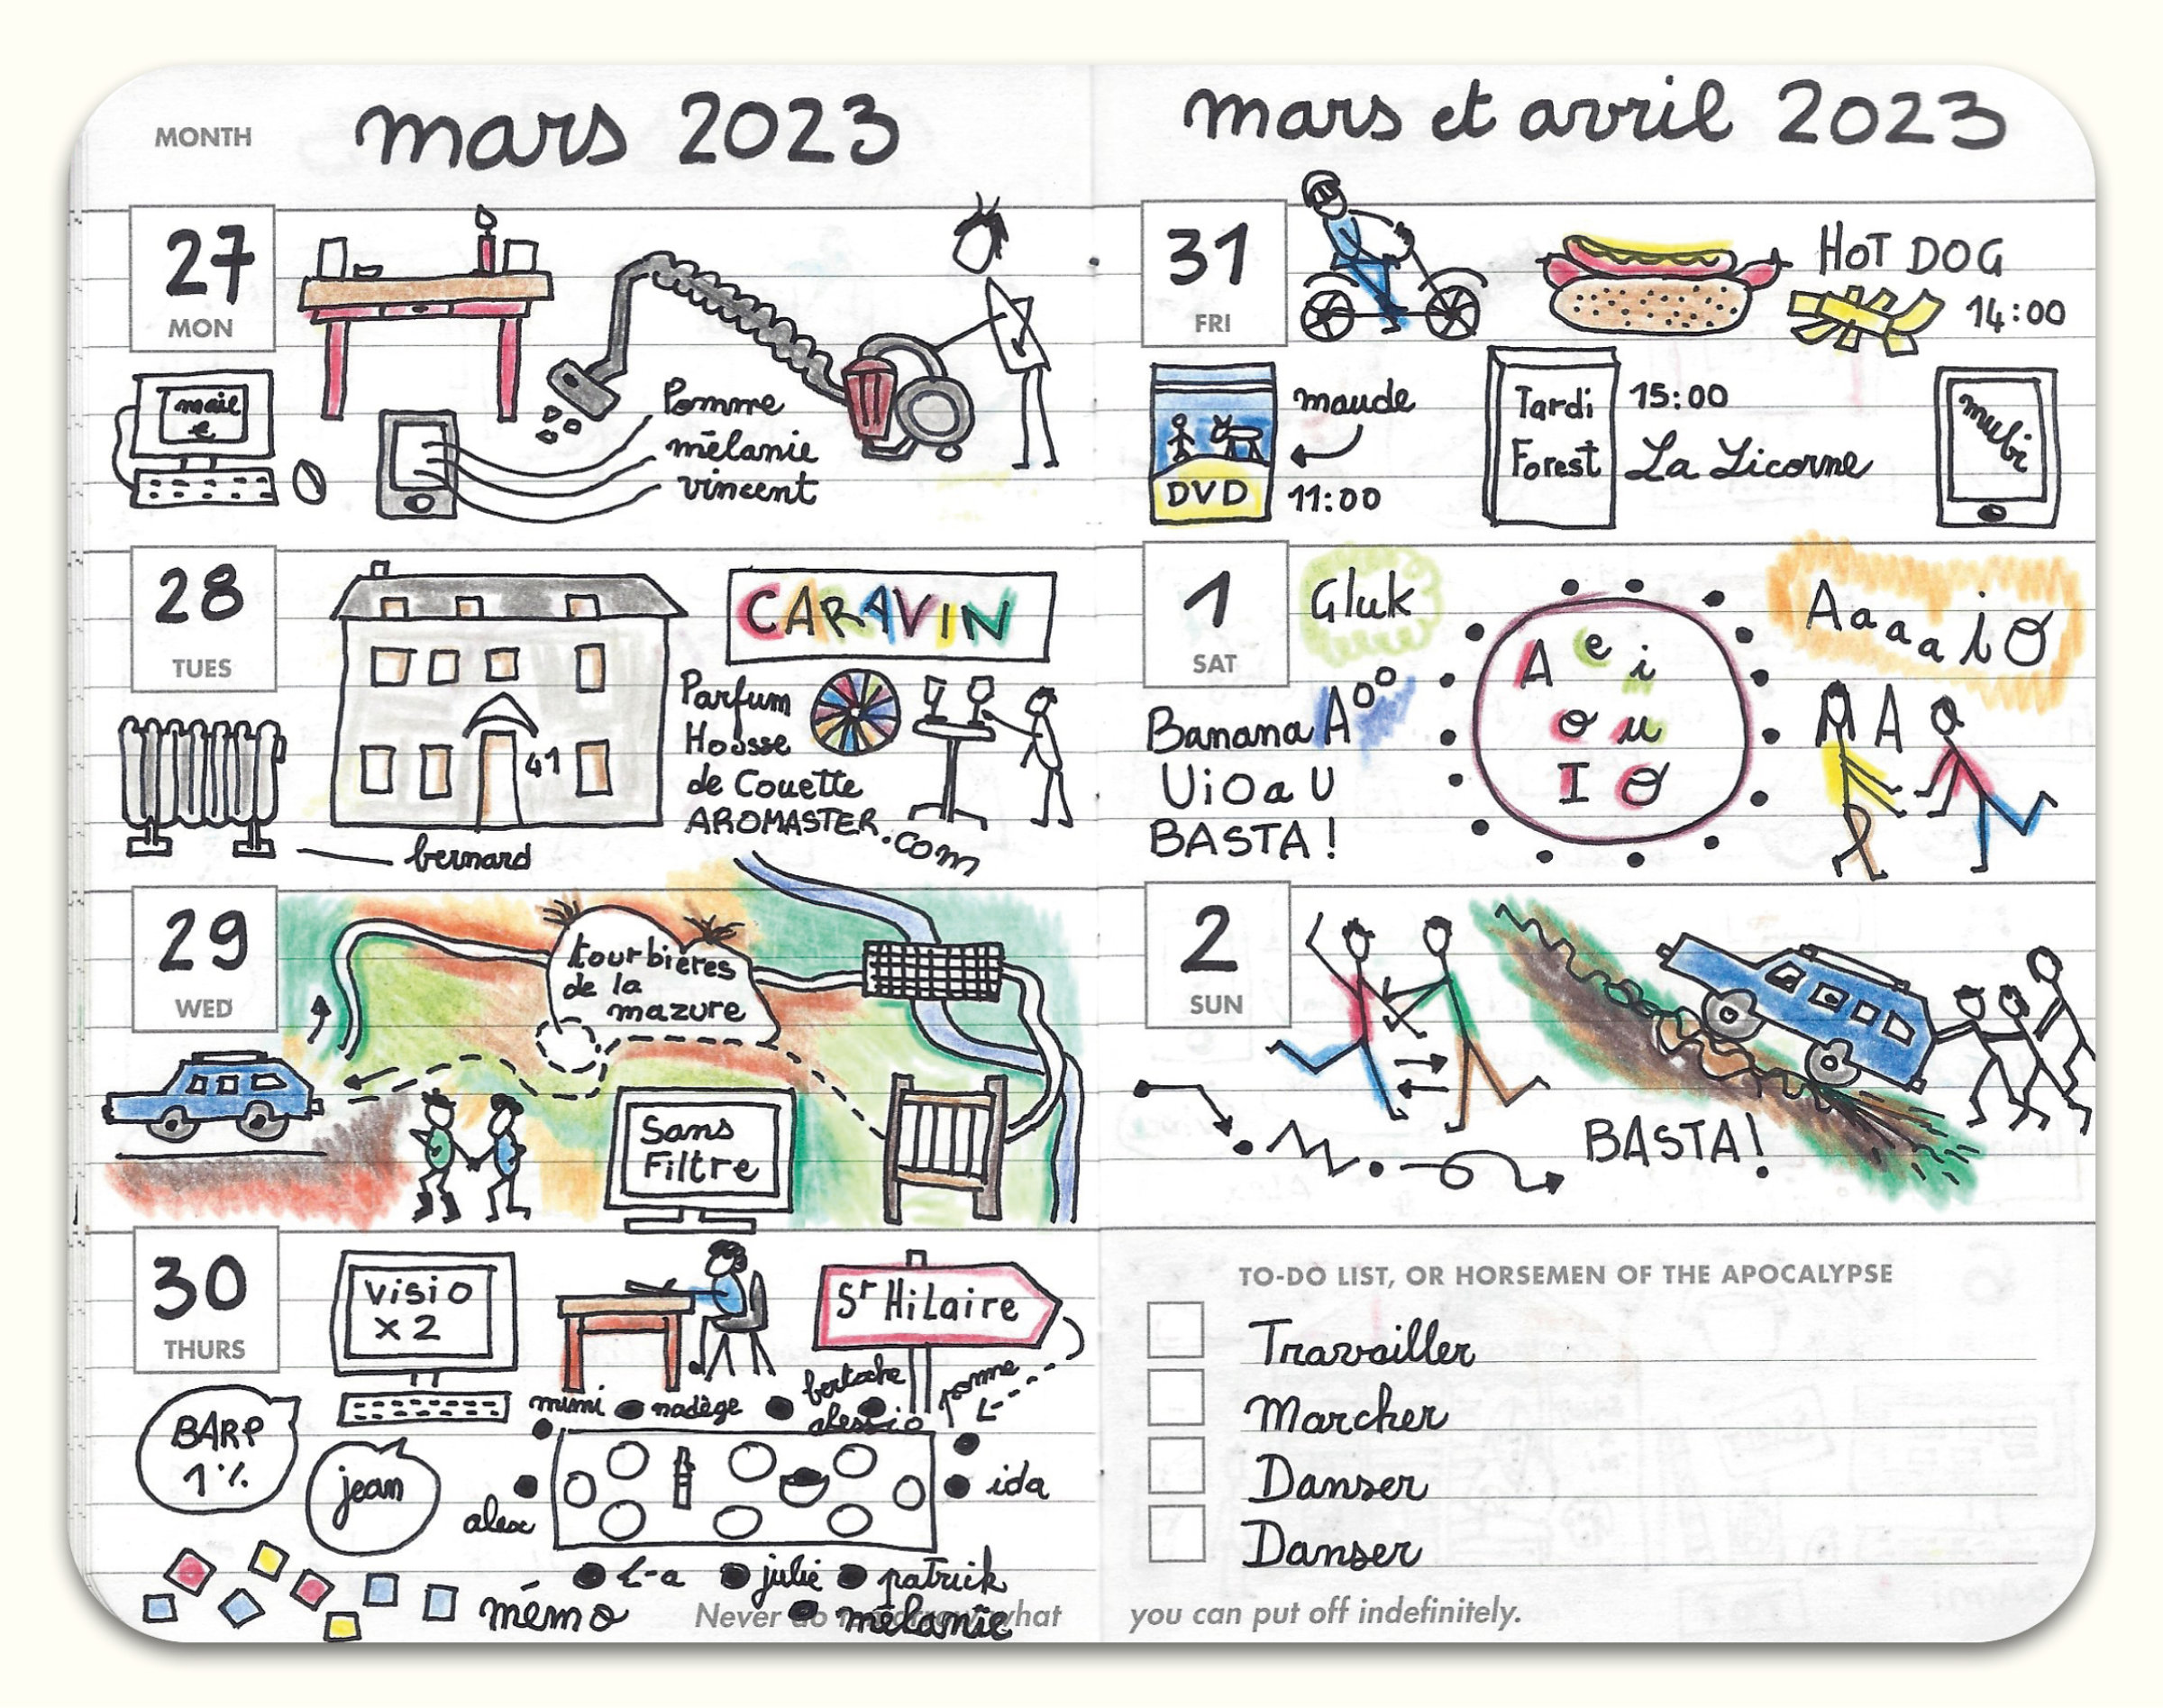 MONTH
mars 2023
27
MON
mail
e
Pomme
mélanie
vincent
28
TUES
41
bernard
CARAVIN
Parfum
Housse
de Couette
AROMASTER.com
29
WED
tourbières
de la
mazure
Sans
Filtre
30
THURS
Visio
x 2
St Hilaire
BARP
1%
jean
mimi
nadège
bertoche
alessio
pomme
alex
ida
L-a
julie
patrick
mélanie
mémo
Never do tomorrow what
mars et avril 2023
31
FRI
HOT DOG
14:00
DVD
maude
11:00
Tardi
Forest
15:00
La Licorne
mubi
1
SAT
Gluk
Banana Aoo
UiOaU
BASTA!
A e i
o u
I O
AaaaiO
A A
2
SUN
BASTA!
TO-DO LIST, OR HORSEMEN OF THE APOCALYPSE
Travailler
Marcher
Danser
Danser
you can put off indefinitely.